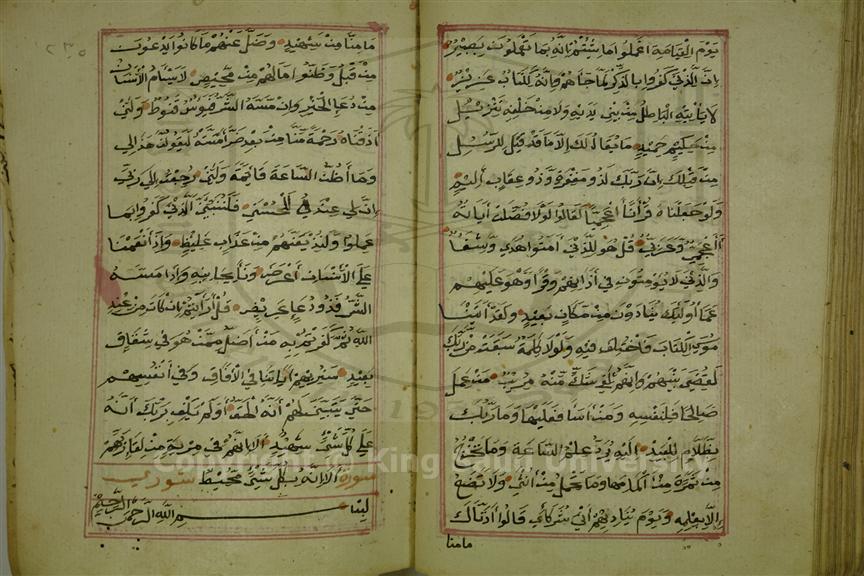 يَوْمَ الْقِيَامَةِ اعْمَلُوا مَا شِئْتُمْ إِنَّهُ بِمَا تَعْمَلُونَ بَصِيرٌ
إِنَّ الَّذِينَ كَفَرُوا بِالذِّكْرِ لَمَّا جَاءَهُمْ وَإِنَّهُ لَكِتَابٌ عَزِيزٌ
لَا يَأْتِيهِ الْبَاطِلُ مِنْ بَيْنِ يَدَيْهِ وَلَا مِنْ خَلْفِهِ تَنْزِيلٌ
مِنْ حَكِيمٍ حَمِيدٍ مَا يُقَالُ لَكَ إِلَّا مَا قَدْ قِيلَ لِلرُّسُلِ
مِنْ قَبْلِكَ إِنَّ رَبَّكَ لَذُو مَغْفِرَةٍ وَذُو عِقَابٍ أَلِيمٍ
وَلَوْ جَعَلْنَاهُ قُرْآنًا أَعْجَمِيًّا لَقَالُوا لَوْلَا فُصِّلَتْ آيَاتُهُ
أَأَعْجَمِيٌّ وَعَرَبِيٌّ قُلْ هُوَ لِلَّذِينَ آمَنُوا هُدًى وَشِفَاءٌ
وَالَّذِينَ لَا يُؤْمِنُونَ فِي آذَانِهِمْ وَقْرٌ وَهُوَ عَلَيْهِمْ
عَمًى أُولَئِكَ يُنَادَوْنَ مِنْ مَكَانٍ بَعِيدٍ وَلَقَدْ آتَيْنَا
مُوسَى الْكِتَابَ فَاخْتُلِفَ فِيهِ وَلَوْلَا كَلِمَةٌ سَبَقَتْ مِنْ رَبِّكَ
لَقُضِيَ بَيْنَهُمْ وَإِنَّهُمْ لَفِي شَكٍّ مِنْهُ مُرِيبٍ مَنْ عَمِلَ
صَالِحًا فَلِنَفْسِهِ وَمَنْ أَسَاءَ فَعَلَيْهَا وَمَا رَبُّكَ
بِظَلَّامٍ لِلْعَبِيدِ إِلَيْهِ يُرَدُّ عِلْمُ السَّاعَةِ وَمَا تَخْرُجُ
مِنْ ثَمَرَةٍ مِنْ أَكْمَامِهَا وَمَا تَحْمِلُ مِنْ أُنْثَى وَلَا تَضَعُ
إِلَّا بِعِلْمِهِ وَيَوْمَ يُنَادِيهِمْ أَيْنَ شُرَكَائِي قَالُوا آذَنَّاكَ
مامنا
٢٣٥
مَا مِنَّا مِنْ شَهِيدٍ وَضَلَّ عَنْهُمْ مَا كَانُوا يَدْعُونَ
مِنْ قَبْلُ وَظَنُّوا مَا لَهُمْ مِنْ مَحِيصٍ لَا يَسْأَمُ الْإِنْسَانُ
مِنْ دُعَاءِ الْخَيْرِ وَإِنْ مَسَّهُ الشَّرُّ فَيَئُوسٌ قَنُوطٌ وَلَئِنْ
أَذَقْنَاهُ رَحْمَةً مِنَّا مِنْ بَعْدِ ضَرَّاءَ مَسَّتْهُ لَيَقُولَنَّ هَذَا لِي
وَمَا أَظُنُّ السَّاعَةَ قَائِمَةً وَلَئِنْ رُجِعْتُ إِلَى رَبِّي
إِنَّ لِي عِنْدَهُ لَلْحُسْنَى فَلَنُنَبِّئَنَّ الَّذِينَ كَفَرُوا بِمَا
عَمِلُوا وَلَنُذِيقَنَّهُمْ مِنْ عَذَابٍ غَلِيظٍ وَإِذَا أَنْعَمْنَا
عَلَى الْإِنْسَانِ أَعْرَضَ وَنَأَى بِجَانِبِهِ وَإِذَا مَسَّهُ
الشَّرُّ فَذُو دُعَاءٍ عَرِيضٍ قُلْ أَرَأَيْتُمْ إِنْ كَانَ مِنْ عِنْدِ
اللَّهِ ثُمَّ كَفَرْتُمْ بِهِ مَنْ أَضَلُّ مِمَّنْ هُوَ فِي شِقَاقٍ
بَعِيدٍ سَنُرِيهِمْ آيَاتِنَا فِي الْآفَاقِ وَفِي أَنْفُسِهِمْ
حَتَّى يَتَبَيَّنَ لَهُمْ أَنَّهُ الْحَقُّ أَوَلَمْ يَكْفِ بِرَبِّكَ أَنَّهُ
عَلَى كُلِّ شَيْءٍ شَهِيدٌ أَلَا إِنَّهُمْ فِي مِرْيَةٍ مِنْ لِقَاءِ رَبِّهِمْ
سورة أَلَا إِنَّهُ بِكُلِّ شَيْءٍ مُحِيطٌ شورى
بِسْمِ اللَّهِ الرَّحْمَنِ الرَّحِيمِ
Copyright © King Saud University